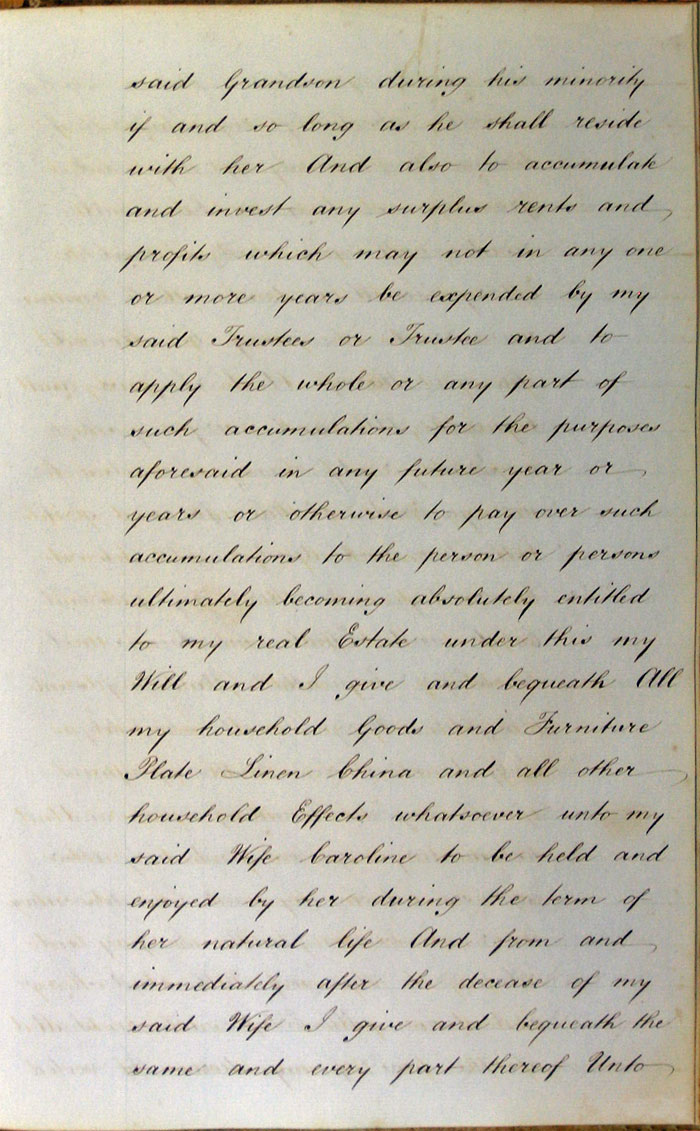 said Grandson during his minority
if and so long as he shall reside
with her And also to accumulate
and invest any surplus rents and
profits which may not in any one
or more years be expended by my
said Trustees or Trustee and to
apply the whole or any part of
such accumulations for the purposes
aforesaid in any future year or
years or otherwise to pay over such
accumulations to the person or persons
ultimately becoming absolutely entitled
to my real Estate under this my
Will and I give and bequeath All
my household Goods and Furniture
Plate Linen China and all other
household Effects whatsoever unto my
said Wife Caroline to be held and
enjoyed by her during the term of
her natural life And from and
immediately after the decease of my
said Wife I give and bequeath the
same and every part thereof Unto